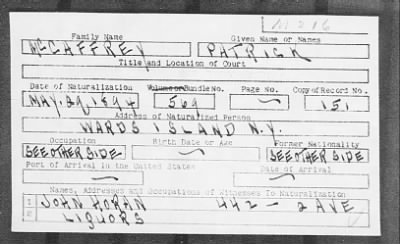 M 216
Family Name Given Name or Names
McCAFFREY PATRICK
Title and Location of Court
Date of Naturalization Volume or Bundle No. Page No. Copy of Record No.
MAY. 29, 1894 569 ~ 151
Address of Naturalized Person
WARDS ISLAND N.Y.
Occupation Birth Date or Age Former Nationality
SEE OTHER SIDE. ~ SEE OTHER SIDE
Port of Arrival in the United States Date of Arrival
~ ~
Names, Addresses and Occupations of Witnesses To Naturalization
1 JOHN HORAN 442 - 2 AVE
2 LIQUORS